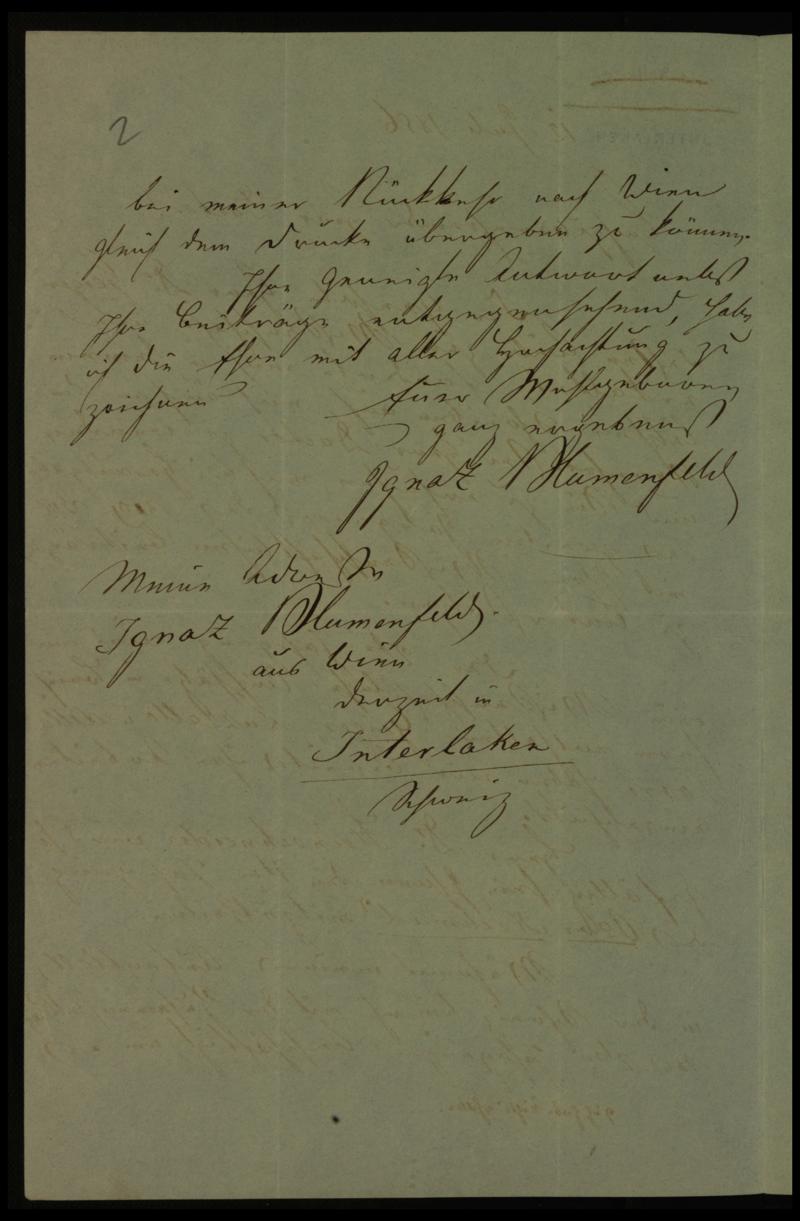 2
bei meiner Rückkehr nach Wien
gleich dem Drucke übergeben zu können.
Ihre geneigte Antwort nebst
Ihre Beiträge entgegensehend, habe
ich die Ehre mit aller Hochachtung zu
zeichnen
Euer Wohlgeboren
ganz ergebenst
Ignaz Blumenfeld
Meine Adresse
Ignaz Blumenfeld.
aus Wien
derzeit in
Interlaken
Schweiz